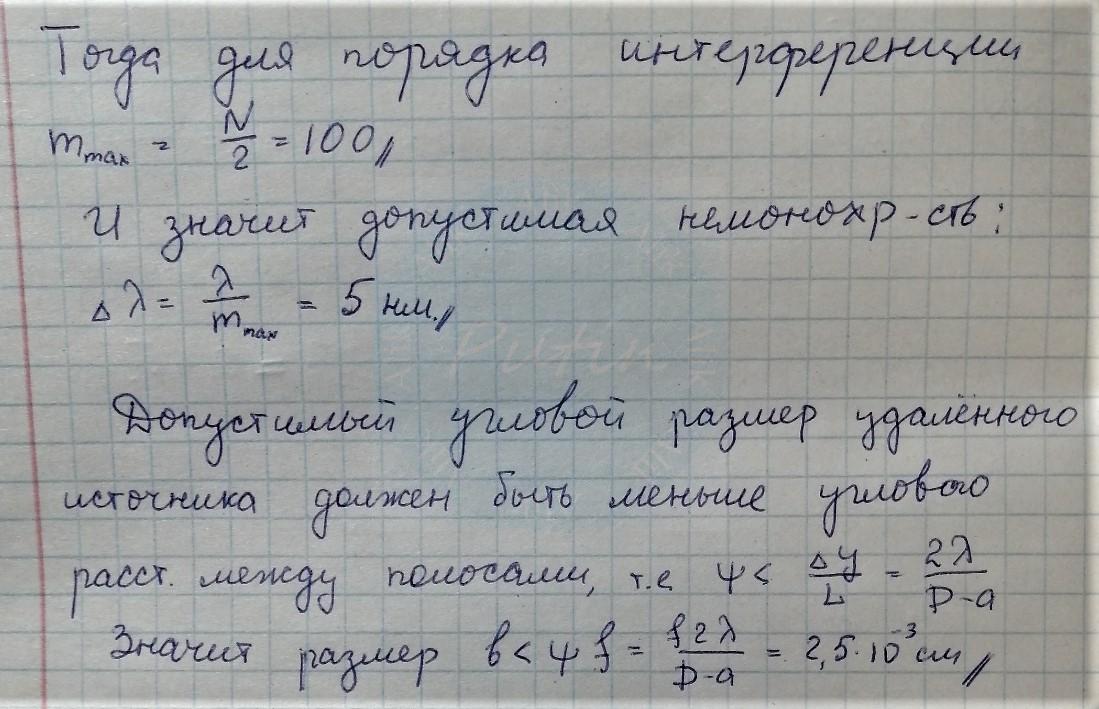 Тогда для порядка интерференции
m_max = N/2 = 100 //
И значит допустимая немонохр-сть:
Δλ = λ/m_max = 5 нм. //
Допустимый угловой размер удалённого
источника должен быть меньше углового
расст. между полосами, т.е ψ < Δy/L = 2λ/D-a
Значит размер b < ψ f = f2λ/D-a = 2,5·10⁻³ см //